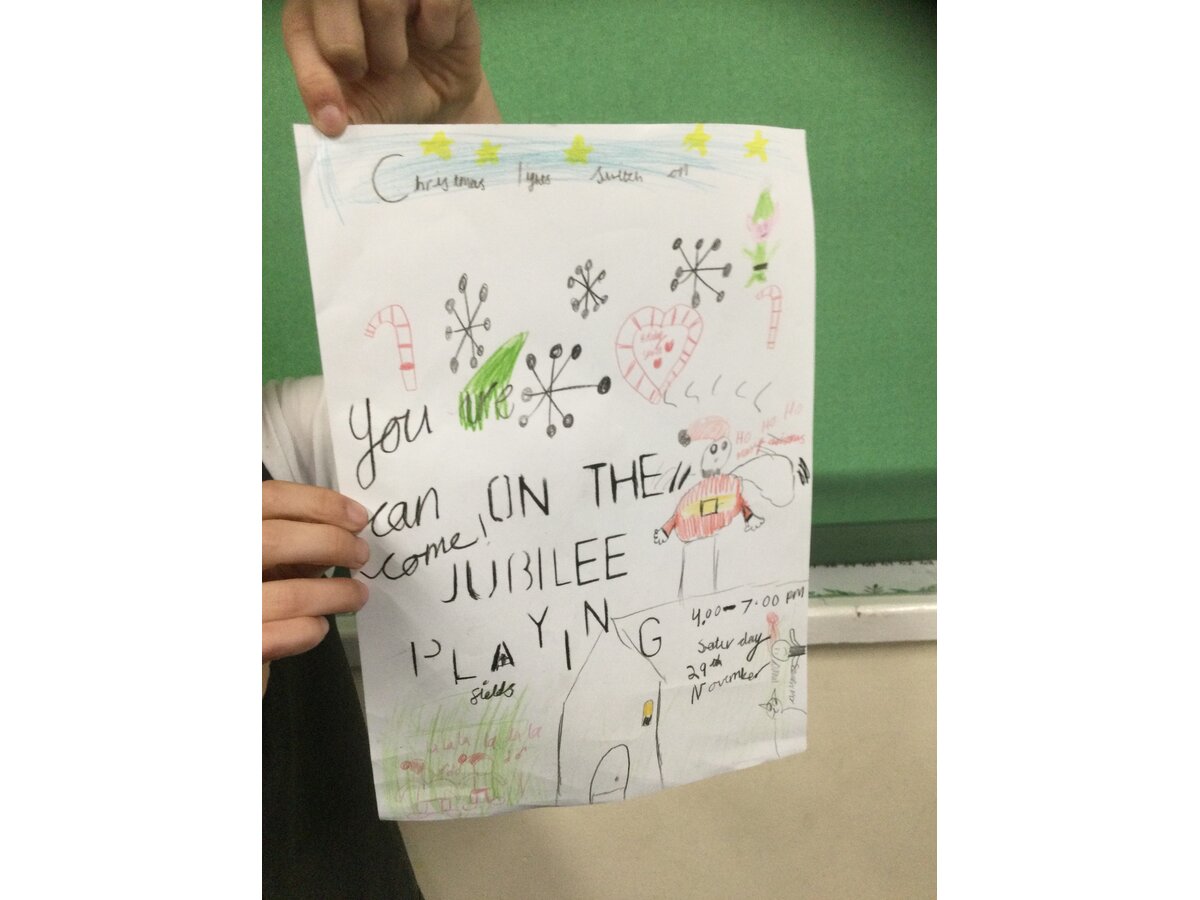 Christmas lights switch on
You are
can
come!
ON THE
JUBILEE
PLAYING
fields
HO HO HO
merry christmas
4.00-7.00 pm
Saturday
29th
November
la la la la la la